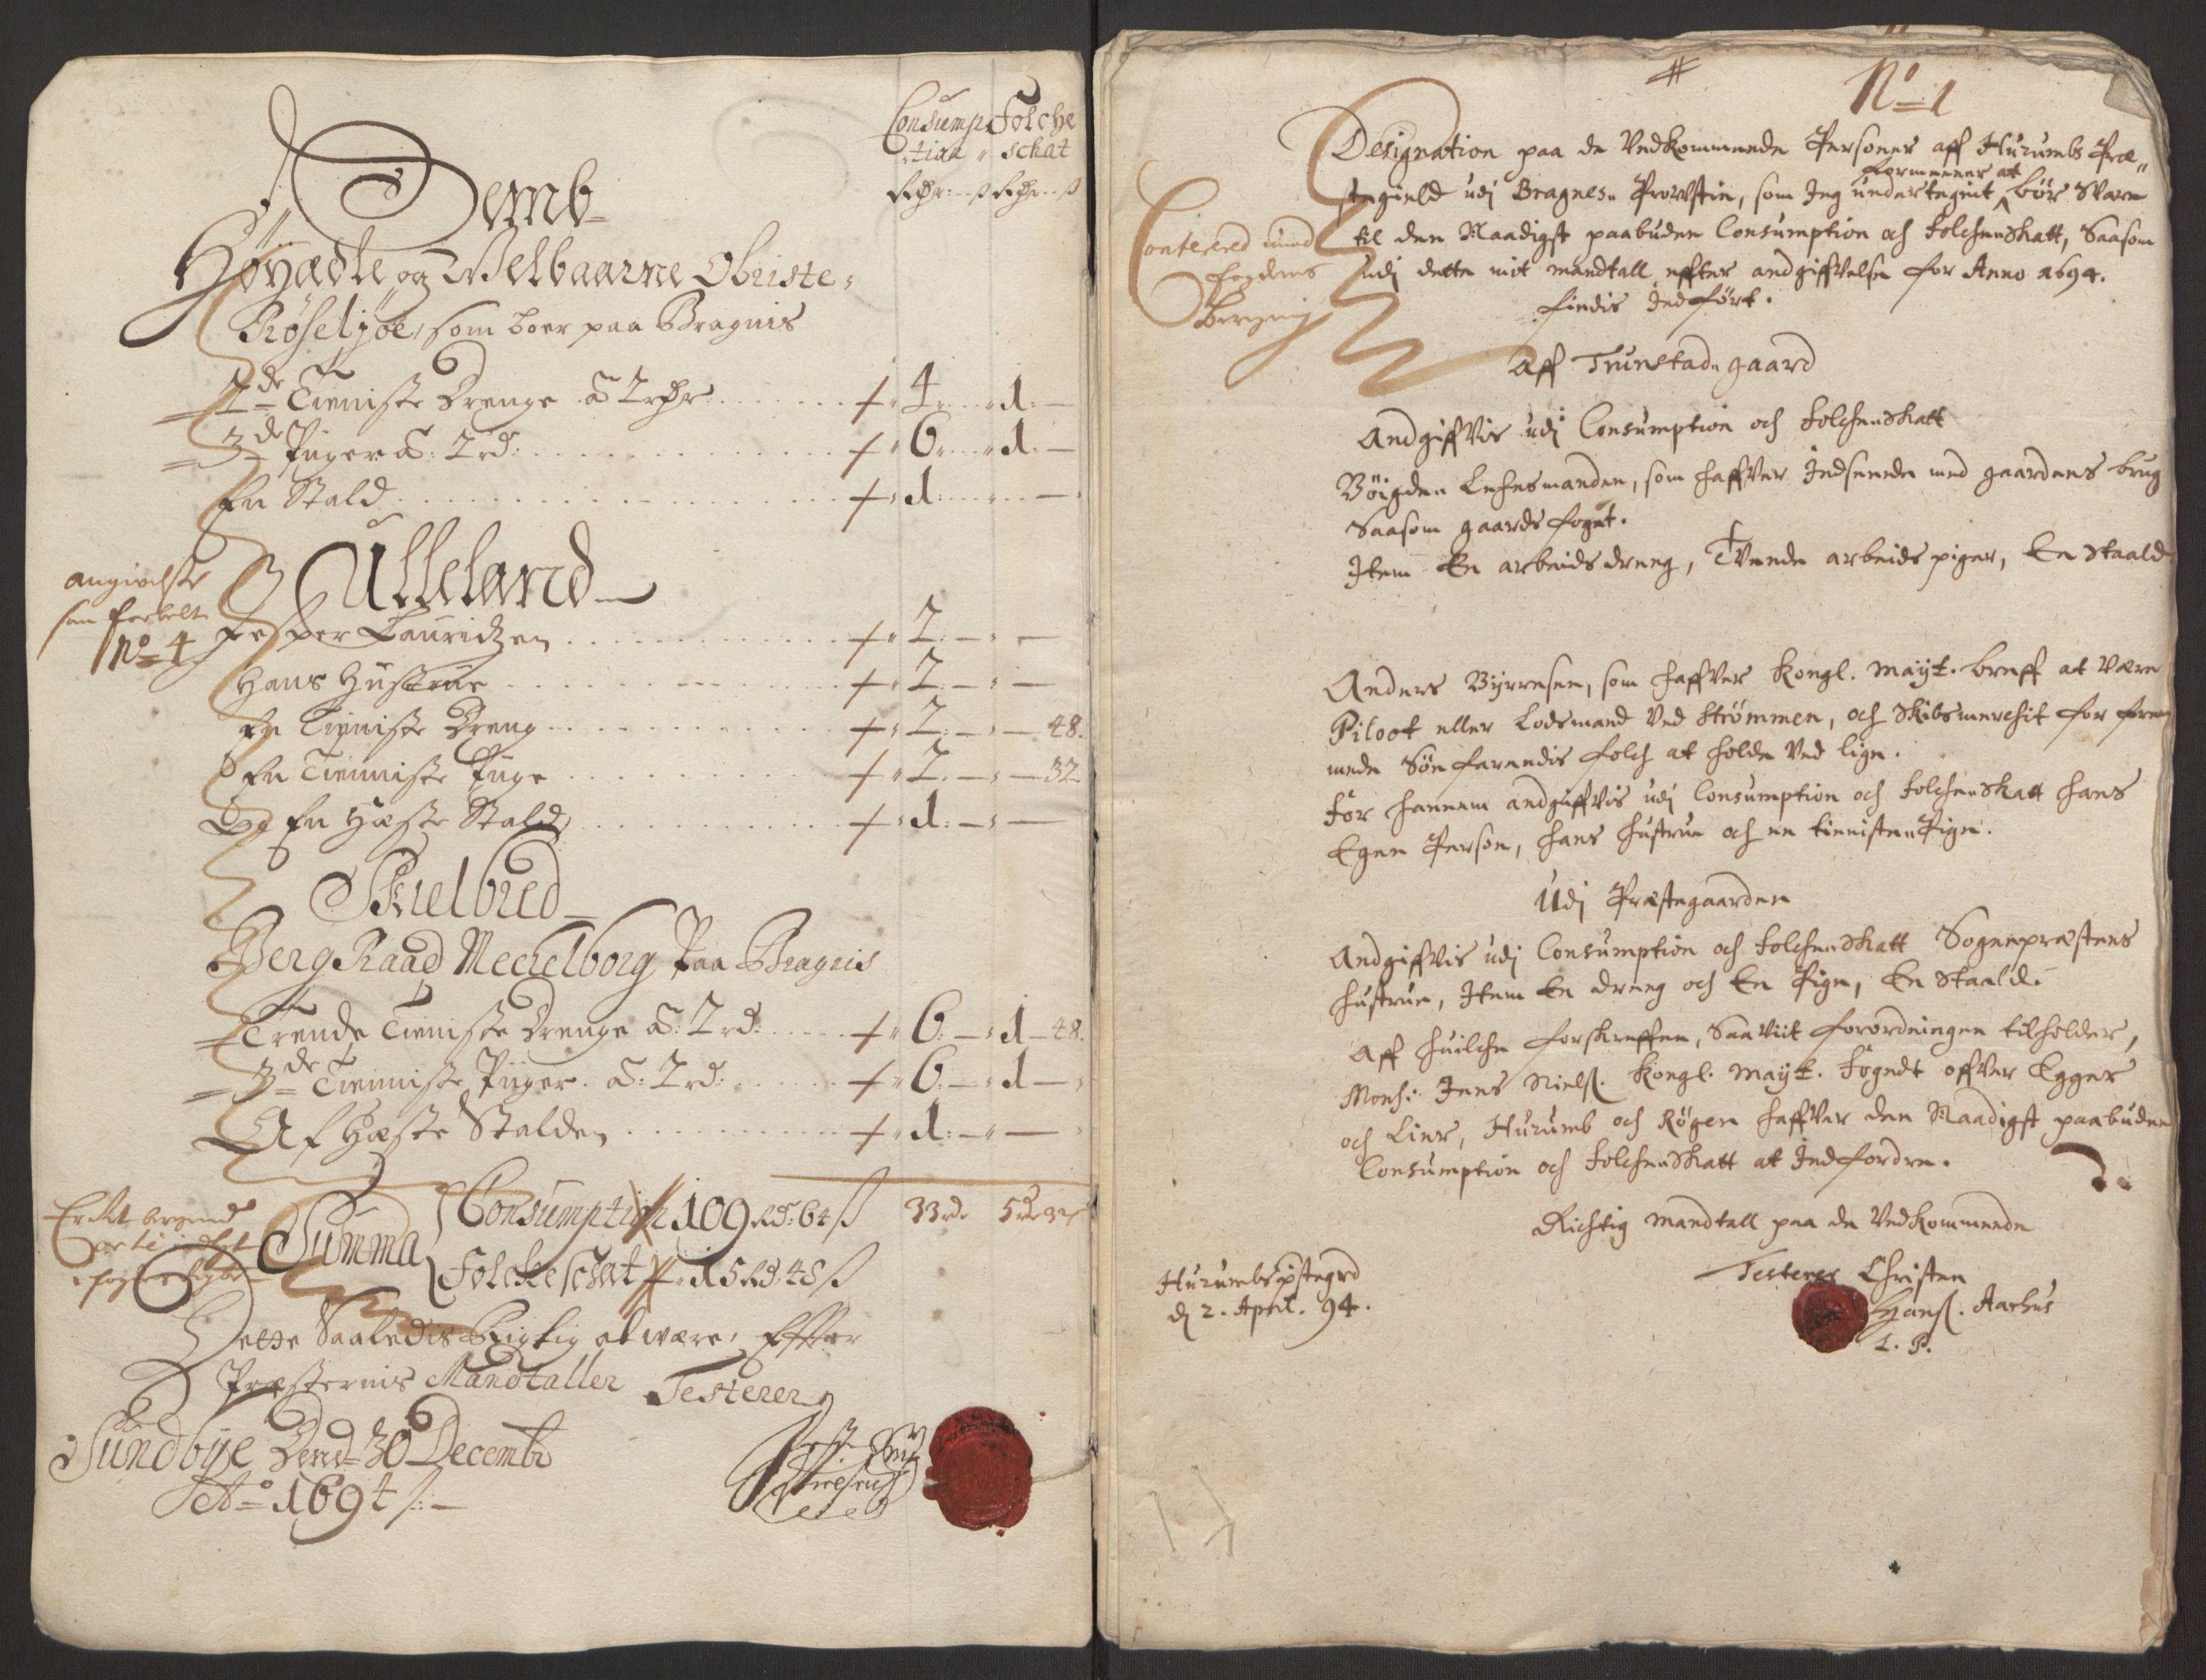 Consump Folche
tion schat
Rdr ß Rdr ß
Demb
Høyædle og Welbaarne Obriste
Røseljøe, som boer paa Bragnis
2de Tieniste Drenge a 2 rdr 4 1
3de Piiger a: 2 rd: 6 1
En Stald 1
Ulleland
angivelse
No 4 Jesper Lauridzen 2
Hans Hustrue 2
En Tieniste Dreng 2 48.
En Tieniste Piige 2 32
Og En Hæste Stald 1
Skielbred
Berg Raad Mechelborg Paa Bragnis
Trende Tieniste Drenge a: 2 rd: 6 1 48.
3de Tieniste Piiger a: 2 rd: 6 1
Af Hæste Stalden 1
Summa Consumption 109 Rd: 64 ß 33 rd 5 rd 32 ß
Folcke schat 15 Rd: 48 ß
Dette Saaledis Rigtig at være, Effter
Præsternis Mandtaller Testerer
Sundbye Dend 30 Decembr
Ao 1694
No 1
Designation paa de Vedkommende Personer aff Hurumbs Præ-
stegield udj Bragnes Provstie, som Jeg undertegnet formeener at bør Svare
til den Naadigst paabudne Consumption och Folche Skatt, Saasom
udj dette mit mandtall effter andgiffvelse for Anno 1694.
findis Indført.
Conferered med
fogdens
Aff Trunstad gaard
Andgiffvis udj Consumption och Folche Skatt
Bøigde Lehnsmanden, som haffver Indseende med gaardens brug
Saasom gaards foget.
Item En arbeids dreng, Tvende arbeids piger, En Staald
Anders Byrresen, som haffver Kongl. Mayt. breff at være
Piloot eller Lodsmand ved Strømmen, och Skibsmerchit for frem
mede Søe farendis folch at holde ved lige.
For hannem andgiffvis udj Consumption och Folche Skatt hans
Egen Person, hans hustrue och en tieniste Pige.
Udj Præstegaarden
Andgiffvis udj Consumption och Folche Skatt Sognepræstens
hustrue, Item En dreng och En Pige, En Staald.
Aff huilche forskreffne, Saaviit forordningen tilholder,
Monsr: Jens Nielß. Kongl. Mayt. Fogedt offver Egger
och Lier, Hurumb och Røgen haffver den Naadigst paabudne
Consumption och Folche Skatt at Indfordre.
Richtig mandtall paa de Vedkommende
Hurumbs pstegrd
d 2. April. 94.
Testerer Christen
Hanß. Aarhus